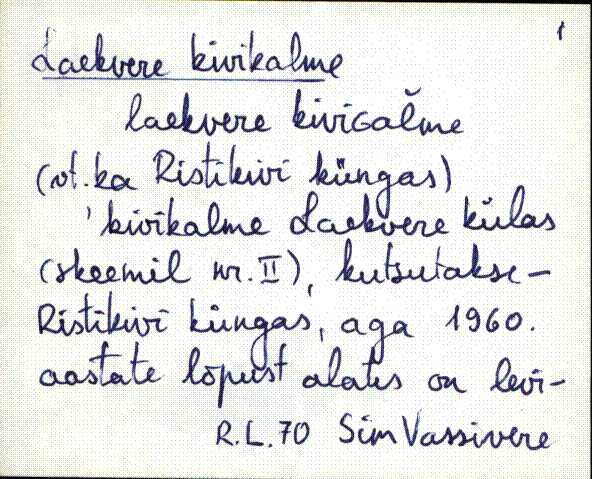 1
Laekvere kivikalme
laekvere kiviGaľme
(vt. ka Ristikivi küngas)
'kivikalme Laekvere külas
(skeemil nr. II), kutsutakse –
Ristikivi küngas, aga 1960.
aastate lõpust alates on levi-
R.L.70 Sim Vassivere